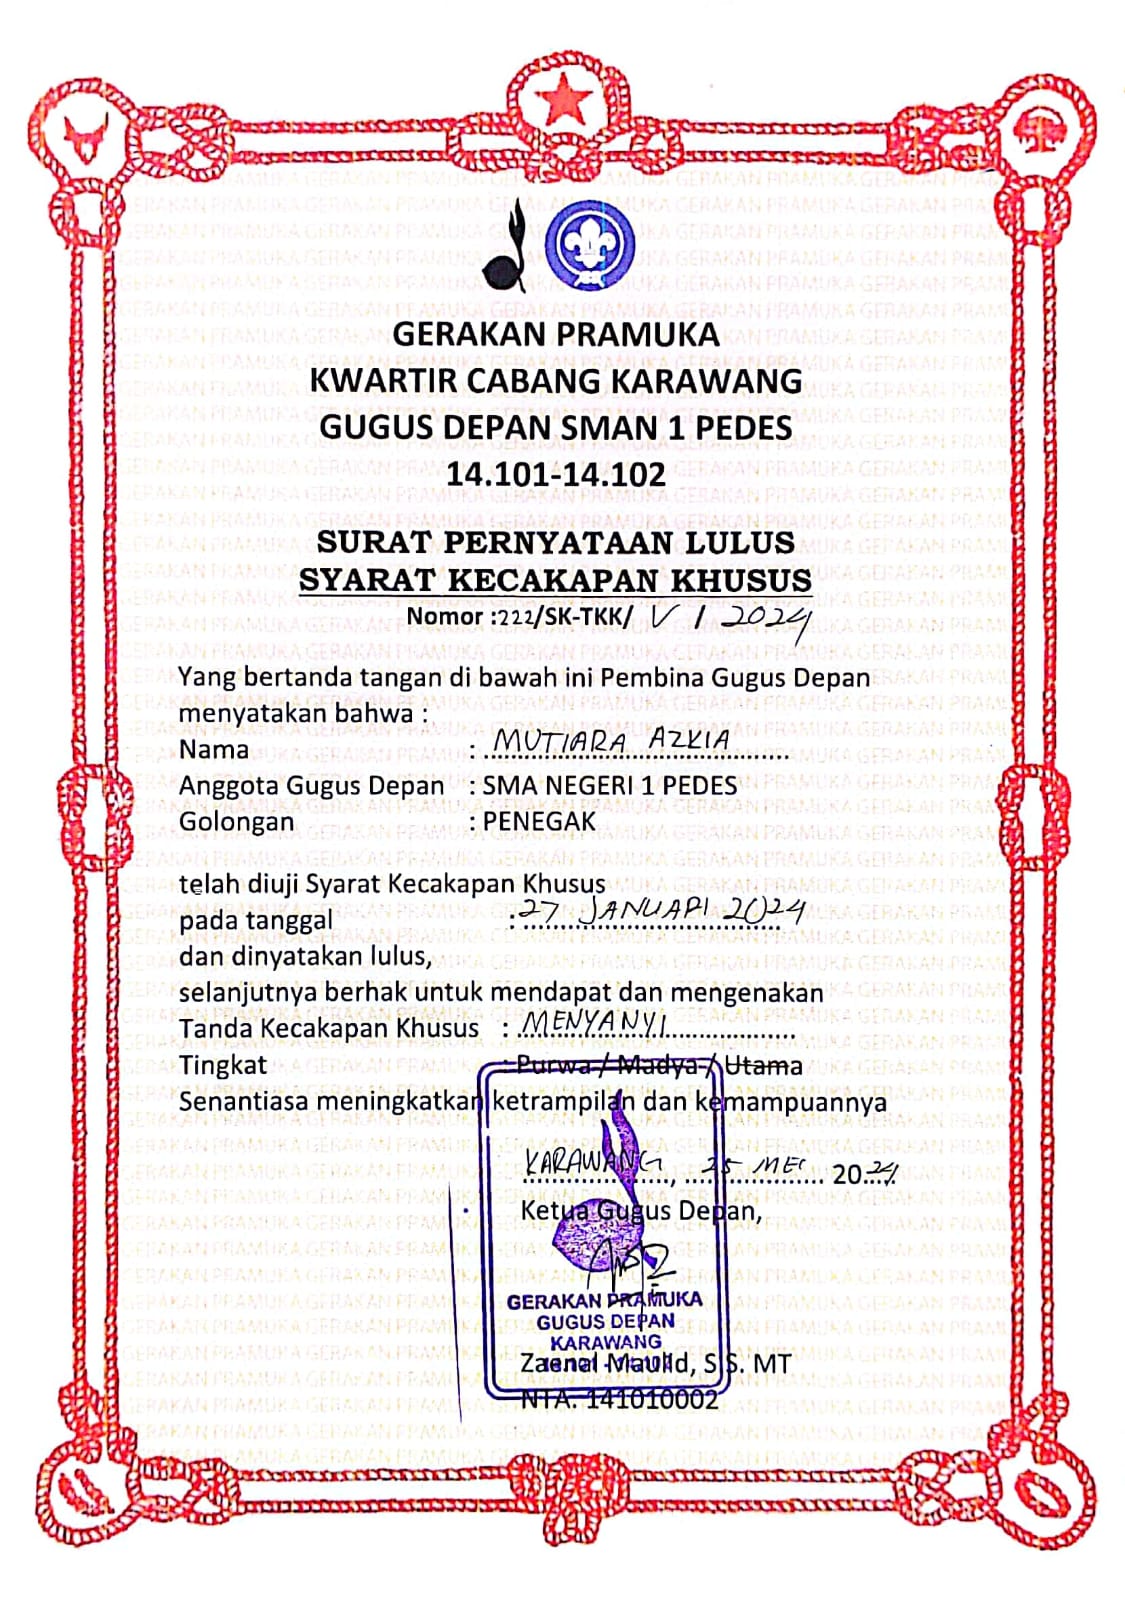 GERAKAN PRAMUKA
KWARTIR CABANG KARAWANG
GUGUS DEPAN SMAN 1 PEDES
14.101-14.102
SURAT PERNYATAAN LULUS
SYARAT KECAKAPAN KHUSUS
Nomor :222/SK-TKK/ V / 2024
Yang bertanda tangan di bawah ini Pembina Gugus Depan
menyatakan bahwa :
Nama : MUTIARA AZKIA
Anggota Gugus Depan : SMA NEGERI 1 PEDES
Golongan : PENEGAK
telah diuji Syarat Kecakapan Khusus
pada tanggal : 27 JANUARI 2024
dan dinyatakan lulus,
selanjutnya berhak untuk mendapat dan mengenakan
Tanda Kecakapan Khusus : MENYANYI
Tingkat : Purwa / Madya / Utama
Senantiasa meningkatkan ketrampilan dan kemampuannya
KARAWANG, 25 MEI 2024
Ketua Gugus Depan,
GERAKAN PRAMUKA
GUGUS DEPAN
KARAWANG
Zaenal Maulid, S.S. MT
NTA. 141010002